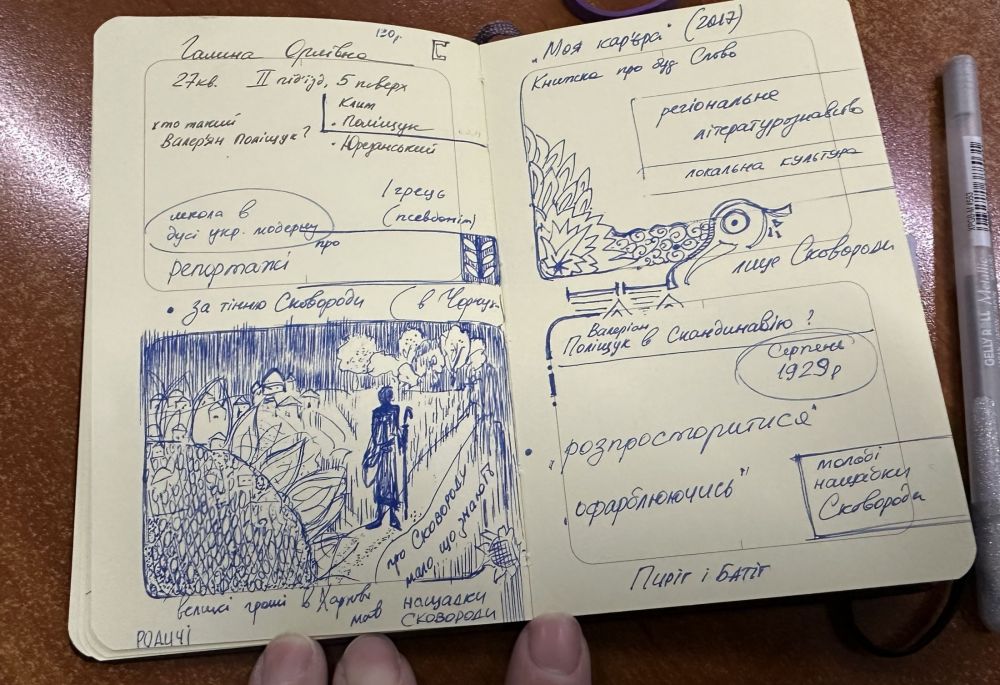 130р.
Галина Орлівна
27кв. II під'їзд, 5 поверх
Клим
• Поліщук
хто такий
Валер'ян Поліщук?
• Юрезанський
Ігрець
(псевдонім)
школа в
дусі укр. модерну
про
репортажі
• За тінню Сковороди
про Сковороду
мало що знають
великі гроші в Харкові
мав
нащадки
Сковороди
РОДИЧІ
„Моя кар'єра" (2017)
Книжка про буд. Слово
регіональне
літературознавство
локальна культура
лице Сковороди
Валеріан
Поліщук в Скандинавію?
Серпень
1929р
„розпросторитися"
„офарблюючись"
молоді
нащадки
Сковороди
Пиріг і БАТІГ
GELLY ROLL Metallic